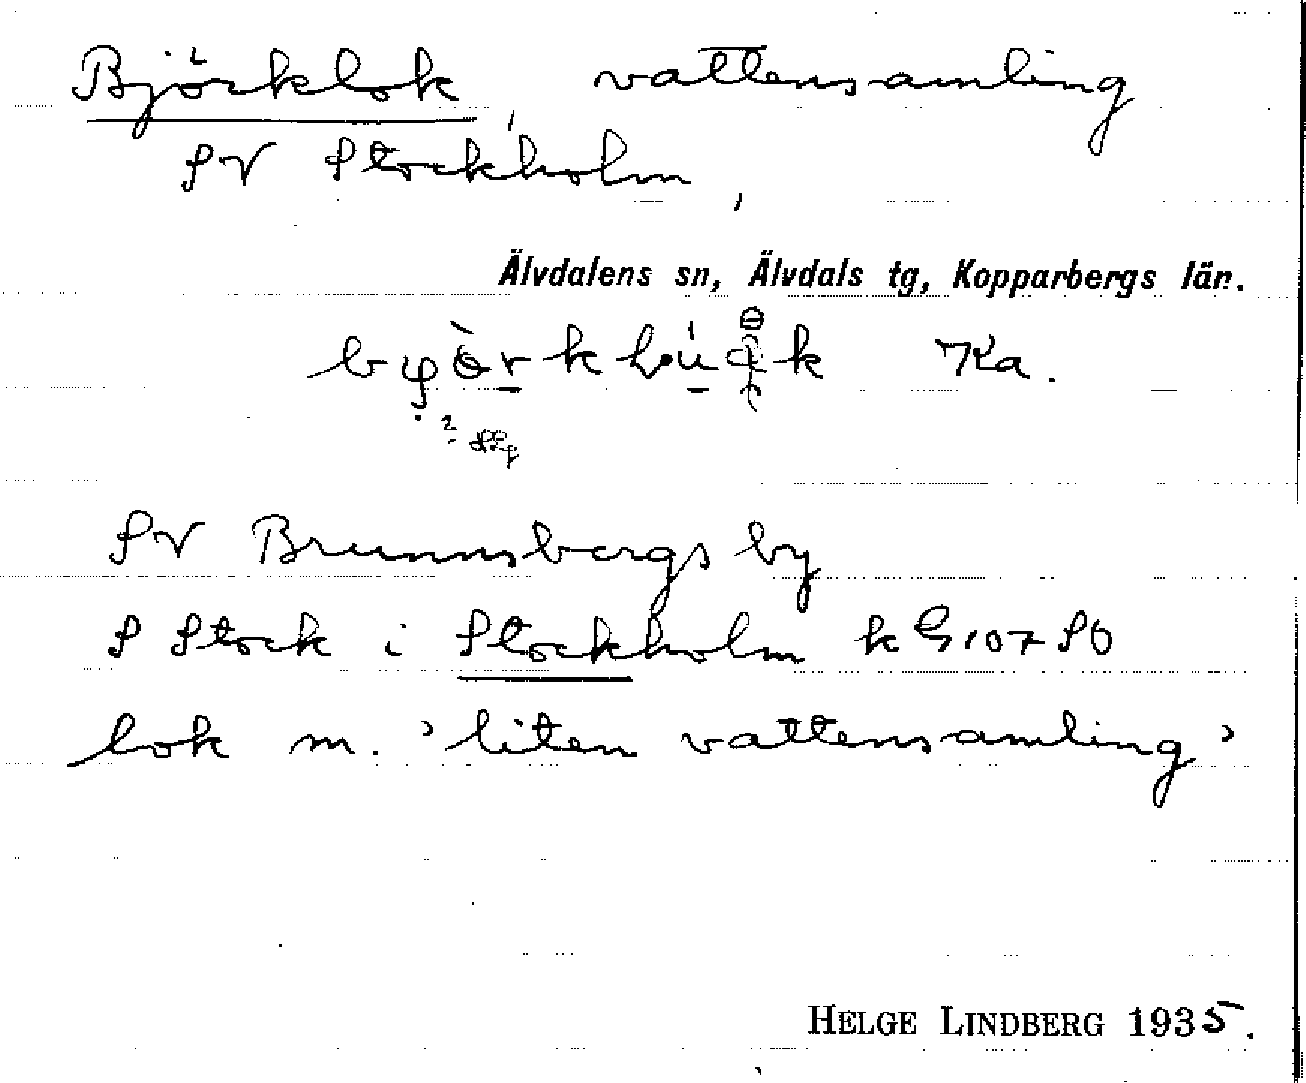 Björklok, vattensamling
SV Stockholm,
Älvdalens sn, Älvdals tg, Kopparbergs län.
Ka.
SV Brunnsbergs by
S Stock i Stockholm k G107 SO
lok m. 'liten vattensamling'
HELGE LINDBERG 1935.